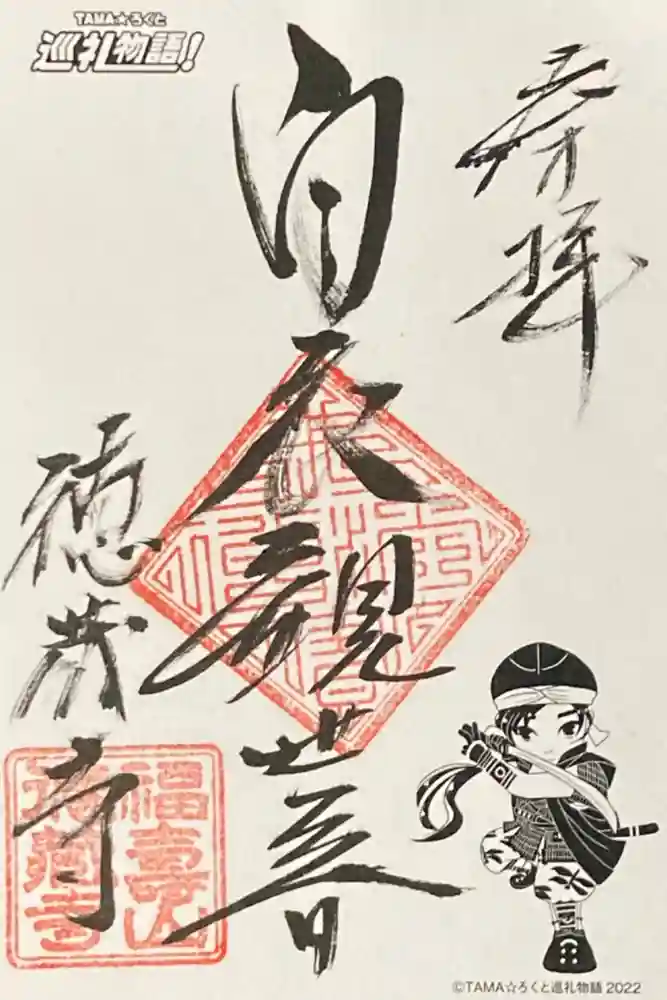 TAMA☆ろくと
巡礼物語!
奉拝
白衣観世音
徳蔵寺
福寿山
徳蔵寺
©TAMA☆ろくと巡礼物語 2022